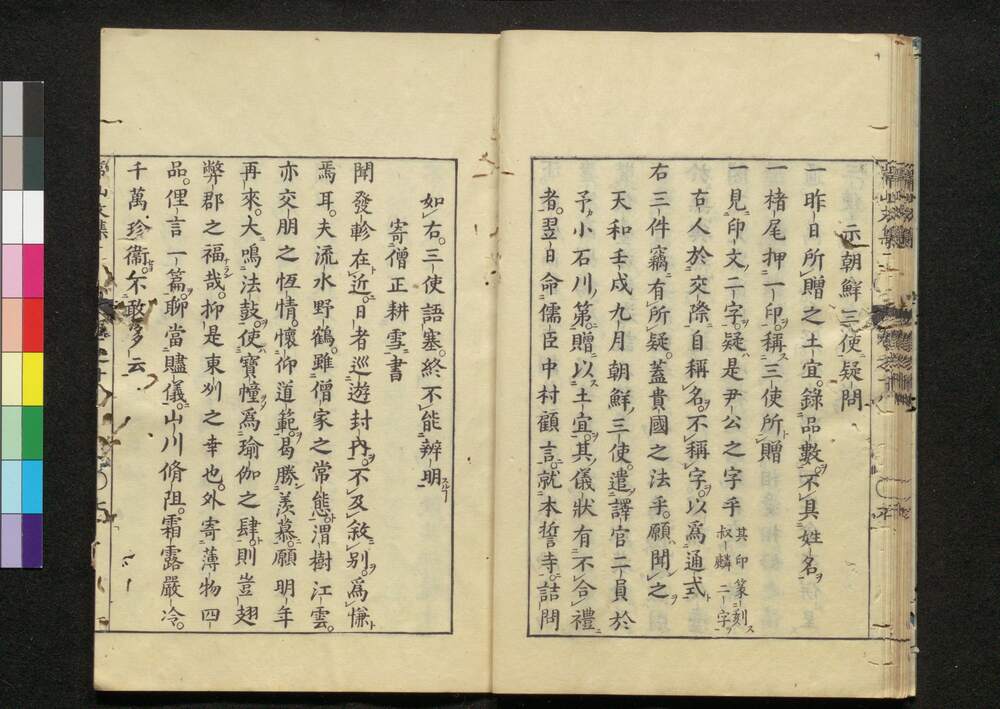 示朝鮮三使疑問
昨日所贈之土宜錄品數不具姓名
一楮尾押一印稱三使所贈
一見印文二字疑是尹公之字乎其印篆刻叔麟二字
右人於交際自稱名不稱字以爲通式
右三件竊有所疑蓋貴國之法乎願聞之
天和壬戌九月朝鮮三使遣譯官二員於
予小石川第贈以土宜其儀狀有不合禮
者翌日命儒臣中村顧言就本誓寺詰問
如右三使語塞終不能辨明
寄僧正耕雪書
聞發軫在近日者巡遊封內不及敘別爲慊
焉耳夫流水野鶴雖僧家之常態渭樹江雲
亦交朋之恆情懷仰道範曷勝羨慕願明年
再來大鳴法鼓使寶幢爲瑜伽之肆則豈翅
弊郡之福哉抑是東州之幸也外寄薄物四
品俚言一篇聊當贐儀山川脩阻霜露嚴冷
千萬珍衞不敢多云